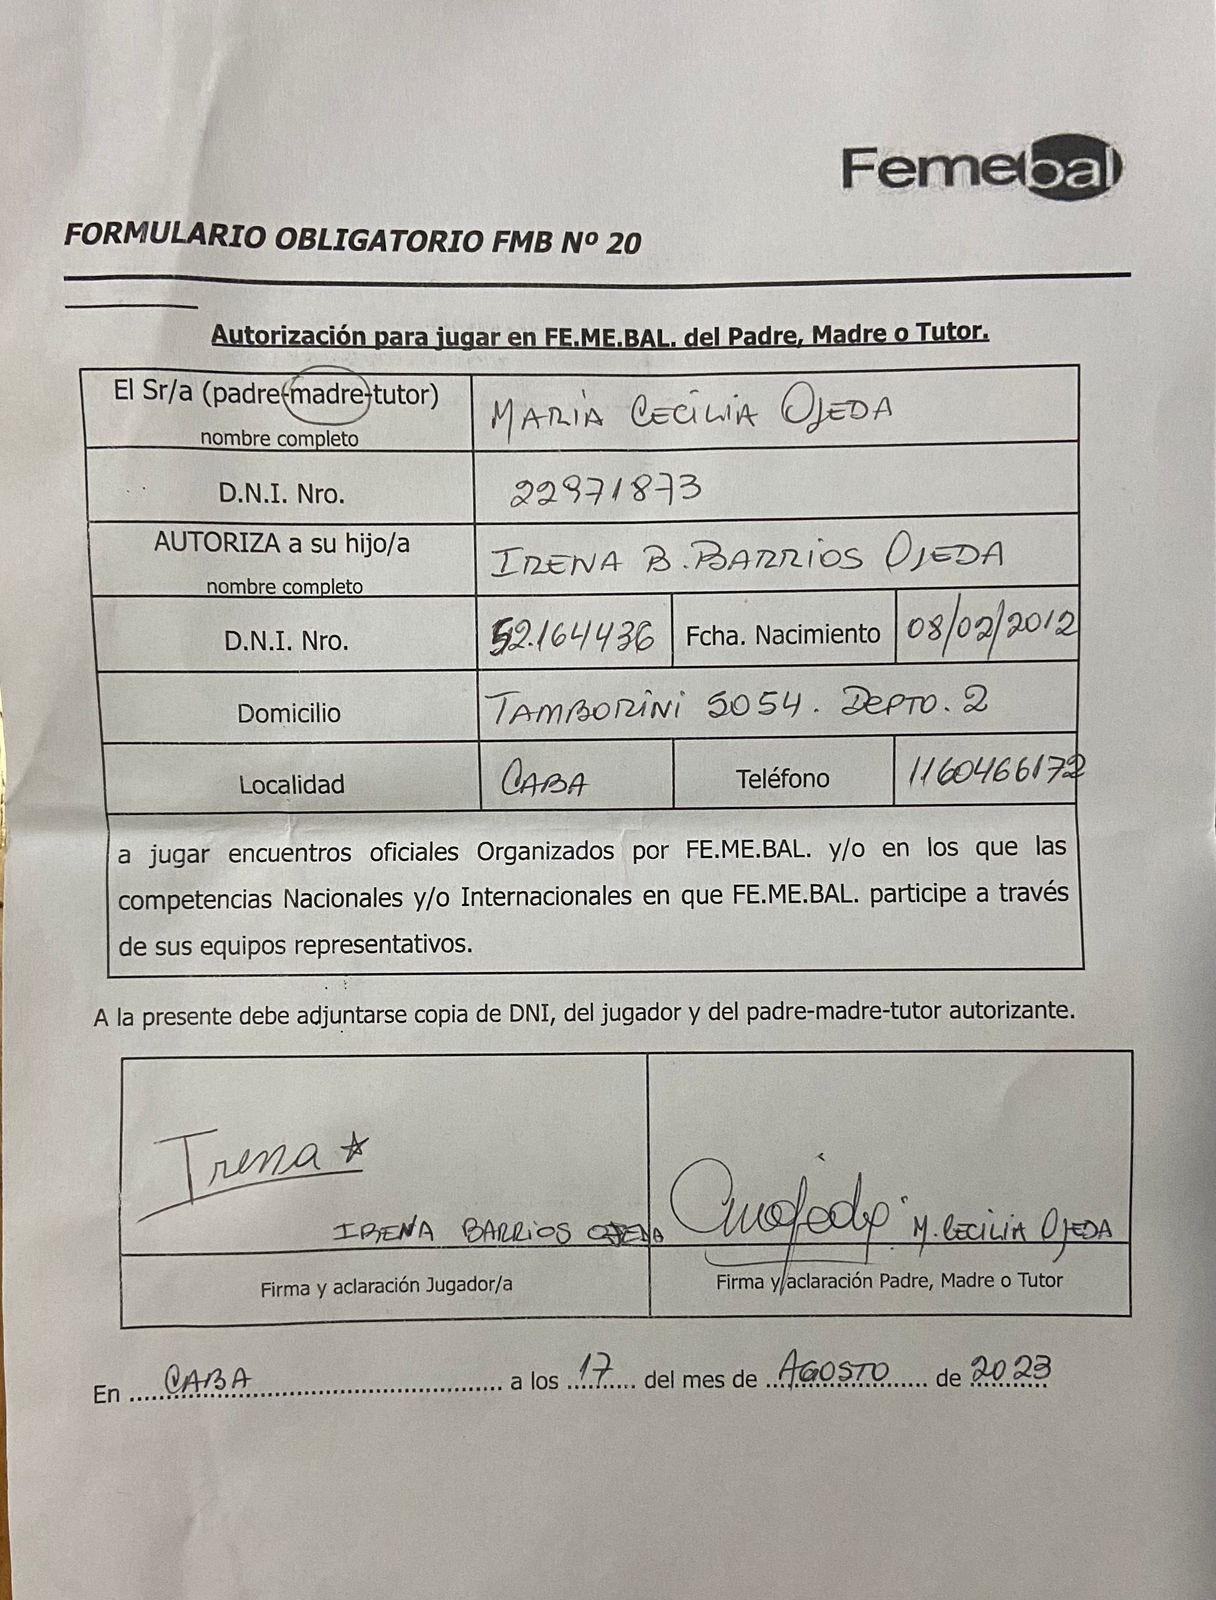 Femebal
FORMULARIO OBLIGATORIO FMB Nº 20
Autorización para jugar en FE.ME.BAL. del Padre, Madre o Tutor.
El Sr/a (padre-madre-tutor) MARIA CECILIA OJEDA
nombre completo
D.N.I. Nro. 22971873
AUTORIZA a su hijo/a IRENA B. BARRIOS OJEDA
nombre completo
D.N.I. Nro. 52.164436 Fcha. Nacimiento 08/02/2012
Domicilio TAMBORINI 5054. DEPTO. 2
Localidad CABA Teléfono 1160466172
a jugar encuentros oficiales Organizados por FE.ME.BAL. y/o en los que las
competencias Nacionales y/o Internacionales en que FE.ME.BAL. participe a través
de sus equipos representativos.
A la presente debe adjuntarse copia de DNI, del jugador y del padre-madre-tutor autorizante.
Irena
IRENA BARRIOS OJEDA M. CECILIA OJEDA
Firma y aclaración Jugador/a Firma y aclaración Padre, Madre o Tutor
En CABA a los 17 del mes de AGOSTO de 2023